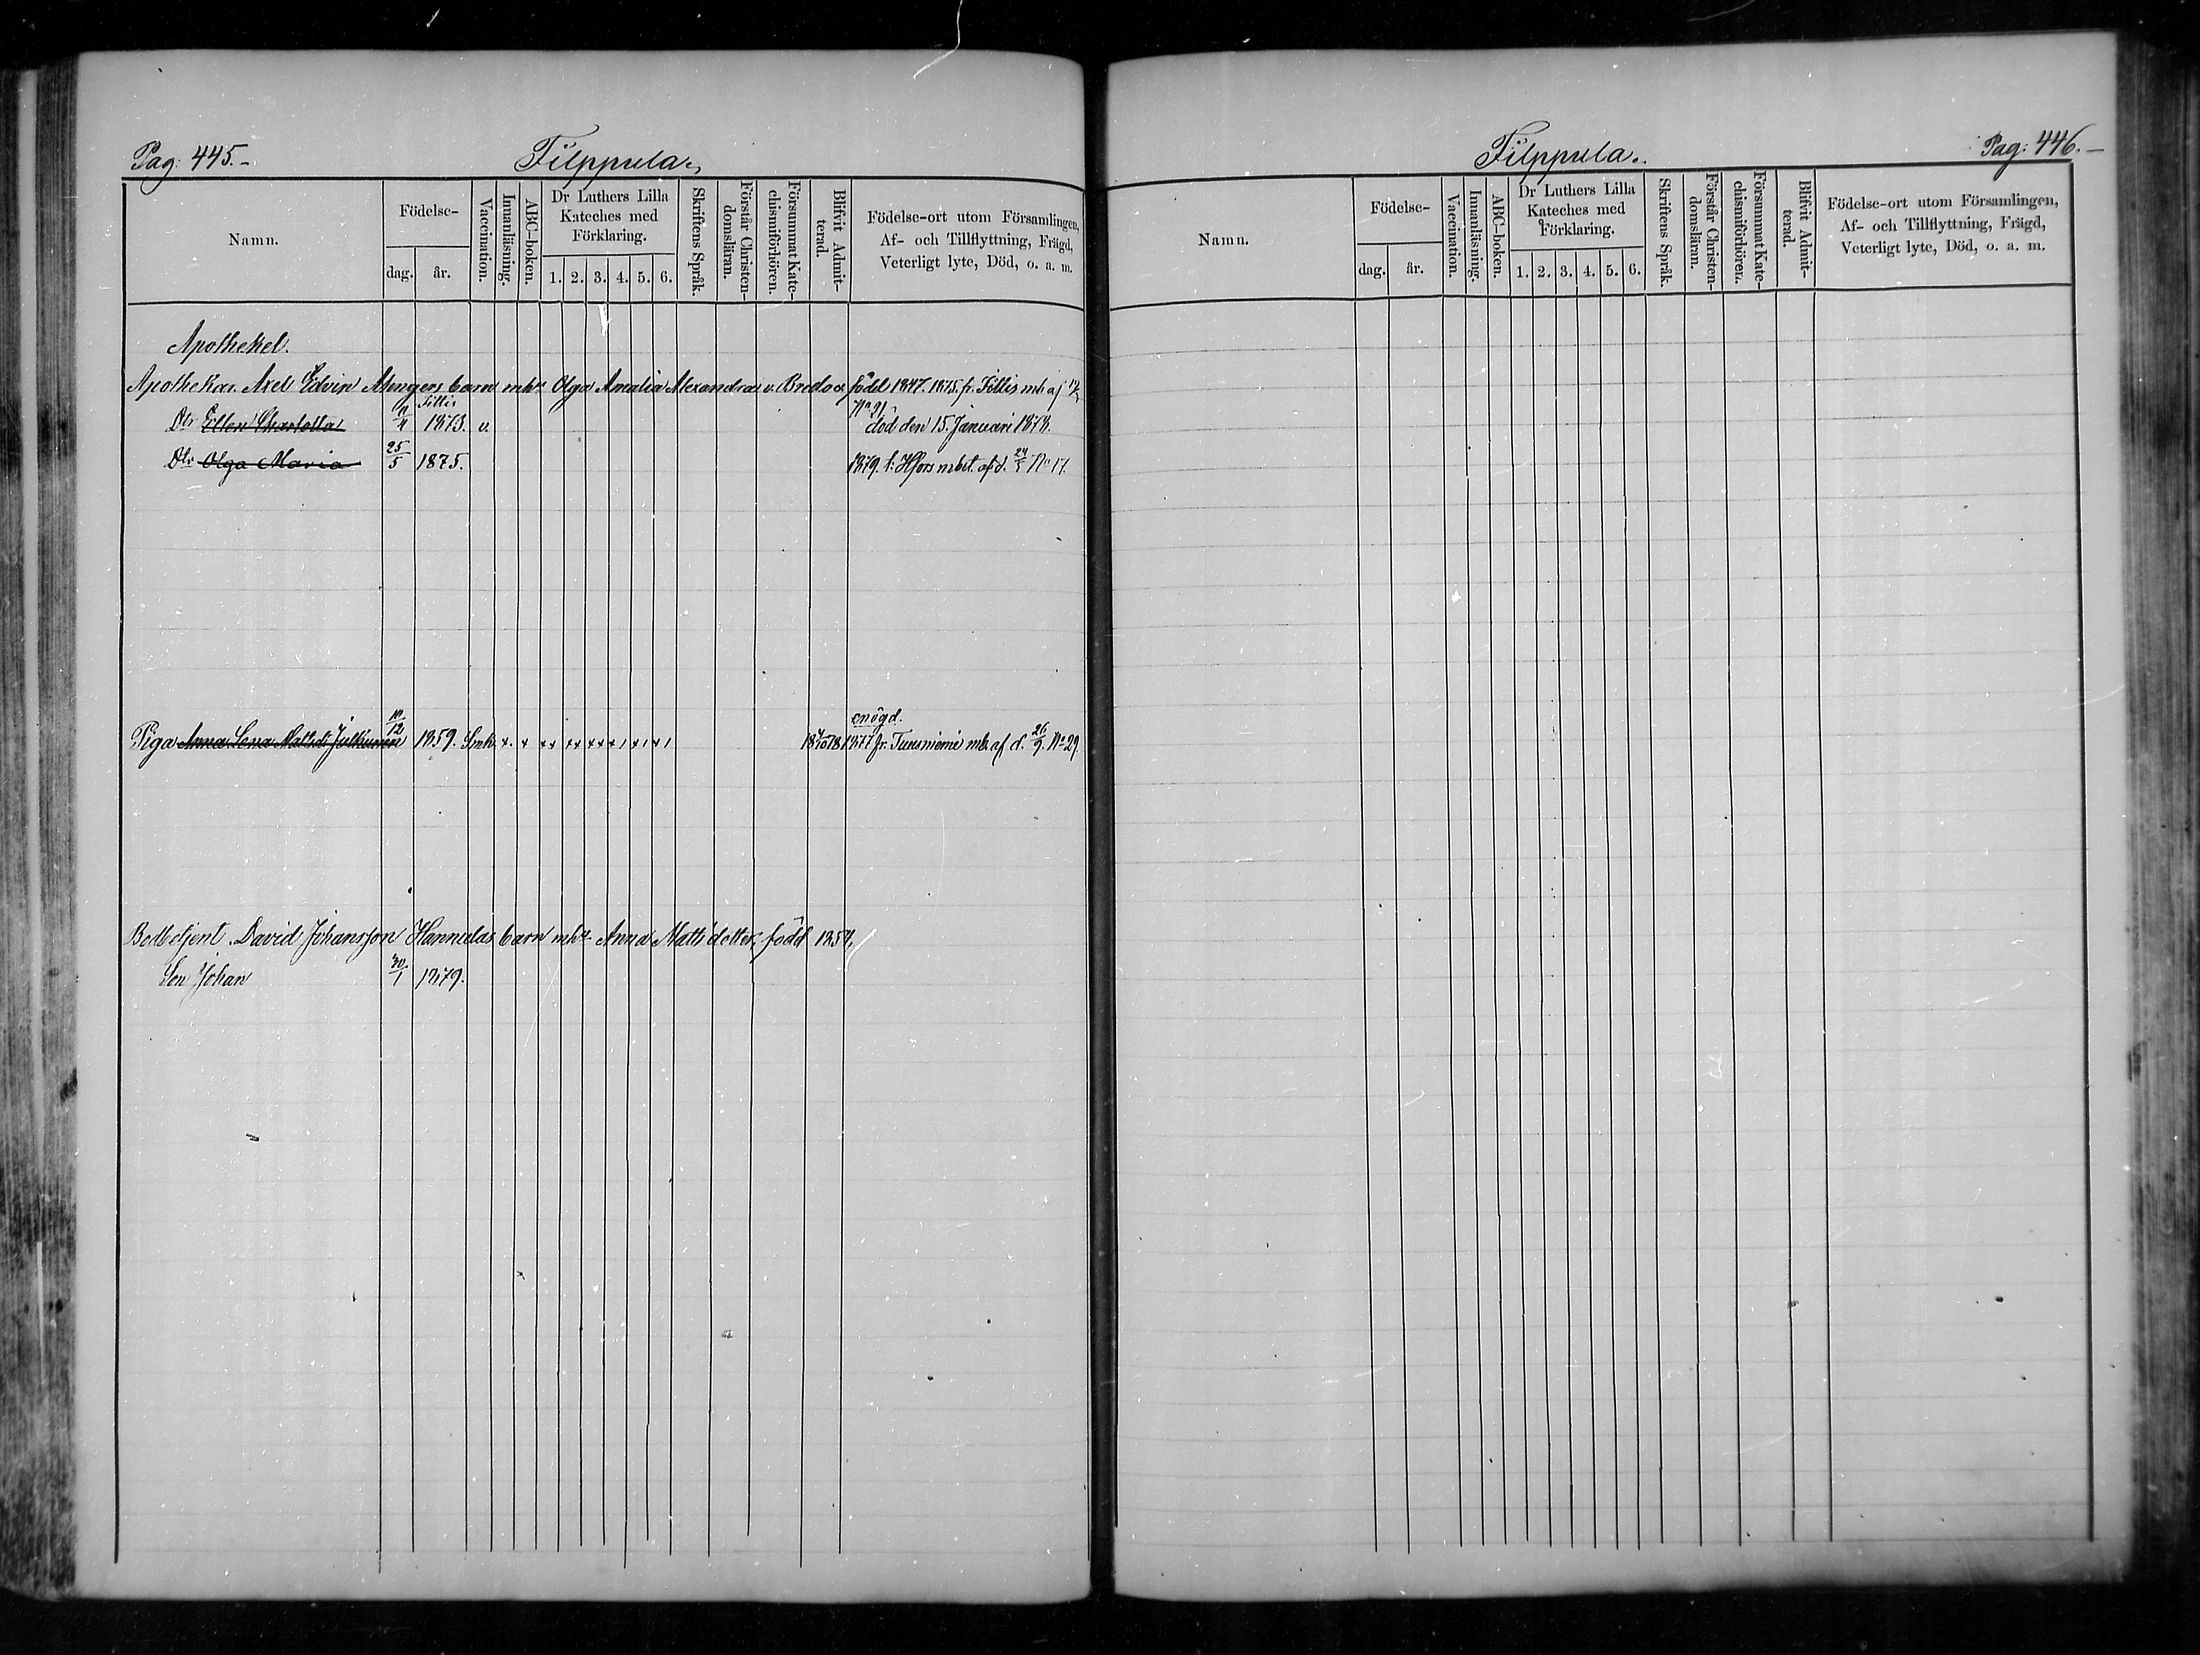 Pag: 445.-
Filppula.
Namn.
Födelse-
dag.
år.
Vaccination.
Innanläsning.
ABC-boken.
Dr Luthers Lilla
Kateches med
Förklaring.
1. 2. 3. 4. 5. 6.
Skriftens Språk.
Förstår Christen-
domsläran.
Försummat Kate-
chismiförhören.
Blifvit Admit-
terad.
Födelse-ort utom Församlingen,
Af- och Tillflyttning, Frägd,
Veterligt lyte, Död, o. a. m.
Apothekel.
Apothekar. Axel Edvin Mengers barn mhu Olga Amalia Alexandra v. Breda född 1847. 1875. fr. mb af
Dtr Ellen Charlotta 1873. v. död den 15. Januari 1878.
Dtr Olga Maria 25/5 1875. 1879. t: Hfors mbet. af d. 24/5 No 17.
snögd.
Piga Anna Lena Mattsdr 10/12 1859. x. x xx xx xx x 1877 fr. mb af d. 26/9. No 29.
Bodbetjent. David Johansson Hannulas barn mhu Anna Matts dotter, född 1854.
Son Johan 30/1 1879.
Filppula.
Pag: 446.-
Namn.
Födelse-
dag.
år.
Vaccination.
Innanläsning.
ABC-boken.
Dr Luthers Lilla
Kateches med
Förklaring.
1. 2. 3. 4. 5. 6.
Skriftens Språk.
Förstår Christen-
domsläran.
Försummat Kate-
chismiförhören.
Blifvit Admit-
terad.
Födelse-ort utom Församlingen,
Af- och Tillflyttning, Frägd,
Veterligt lyte, Död, o. a. m.